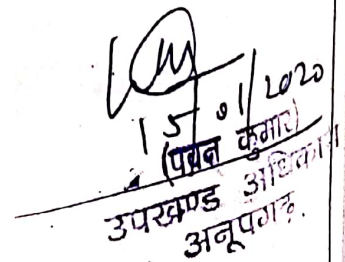 15/01/2020
(पवन कुमार)
उपखण्ड अधिकारी
अनूपगढ़.